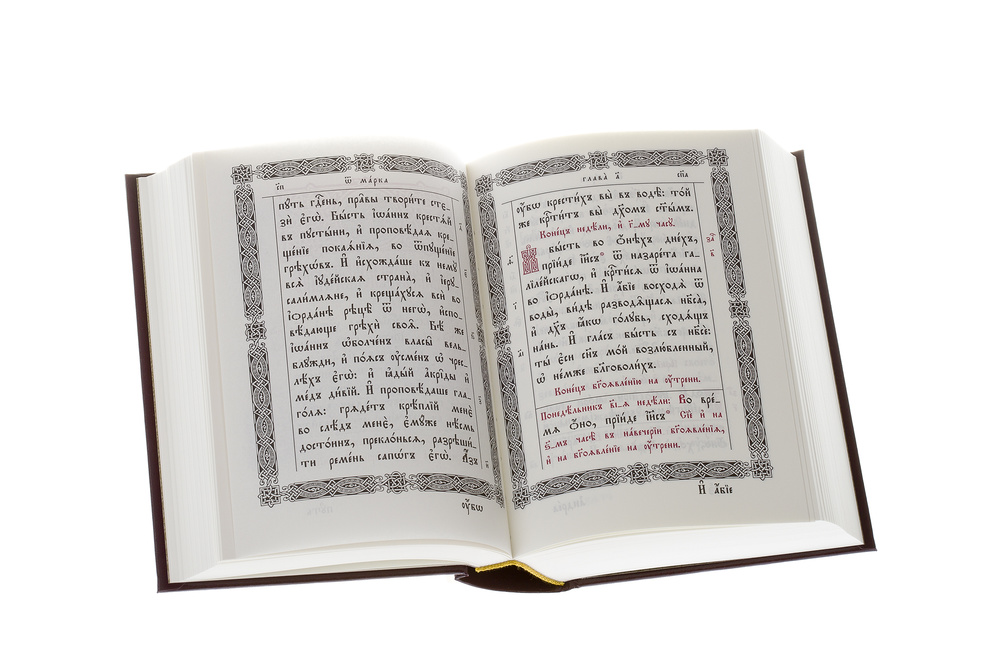 с҃п ѿ ма́рка
пꙋть гдⷭ҇ень, пра̑вы твори́те стє-
зи̑ є҆гѡ̀. Бы́сть і҆ѡа́ннъ крестѧ́й
въ пꙋсты́ни, и҆ проповѣ́даѧ кре-
ще́нїе покаѧ́нїѧ, во ѿпꙋще́нїе
грѣхѡ́въ. И҆ и҆схожда́ше къ немꙋ̀
всѧ̀ і҆ꙋде́йскаѧ страна̀, и҆ і҆ерꙋ-
сали́мляне, и҆ креща́хꙋсѧ всѝ во
і҆ѻрда́нѣ рѣцѣ̀ ѿ негѡ̀, и҆спо-
вѣ́дающе грѣхѝ своѧ̑. Бѣ́ же
і҆ѡа́ннъ ѡ҆болче́нъ власы̑ вель-
блꙋ̑жди, и҆ по́ѧсъ ᲂу҆сме́нъ ѡ҆ чрес-
лѣ́хъ є҆гѡ̀: и҆ ꙗ҆ды́й а҆кри̑ды и҆
ме́дъ ди́вїй. И҆ проповѣ́даше гла-
го́лѧ: грѧде́тъ крѣ́плїй менѐ
во слѣ́дъ менє̀, є҆мꙋ́же нѣ́смь
досто́инъ, прекло́ньсѧ, разрѣши́-
ти реме́нь сапѡ́гъ є҆гѡ̀. А҆́зъ
ᲂу҆́бѡ
глава̀ а҃ сп҃а
ᲂу҆́бѡ крести́хъ вы̀ въ водѣ̀: то́й
же крⷭ҇ти́тъ вы̀ дх҃омъ ст҃ы́мъ.
Коне́цъ недѣ́ли, и҆ г҃-мꙋ часꙋ̀.
И҆ бы́сть во ѻ҆́нѣхъ дне́хъ,
прїи́де і҆и҃съ ѿ назаре́та га-
лїле́йскагѡ, и҆ крⷭ҇ти́сѧ ѿ і҆ѡа́нна
во і҆ѻрда́нѣ. И҆ а҆́бїе восходѧ̀ ѿ
воды̀, ви́дѣ разводѧ́щасѧ нб҃са̀,
и҆ дх҃ъ ꙗ҆́кѡ го́лꙋбь, сходѧ́щъ
на́нь. И҆ гла́съ бы́сть съ нб҃сѐ:
ты̀ є҆сѝ сн҃ъ мо́й возлю́бленный,
ѡ҆ не́мже бл҃говоли́хъ.
Коне́цъ бг҃оѧвле́нїю на ᲂу҆́трени.
Понедѣ́льникъ в҃і-ѧ недѣ́ли: Во вре́-
мѧ ѻ҆́но, прїи́де і҆и҃съ Сїѐ и҆ на
ѕ҃-мъ часѣ̀ въ наве́черїи бг҃оѧвле́нїѧ,
и҆ на бг҃оѧвле́нїе на ᲂу҆́трени.
И҆ а҆́бїе